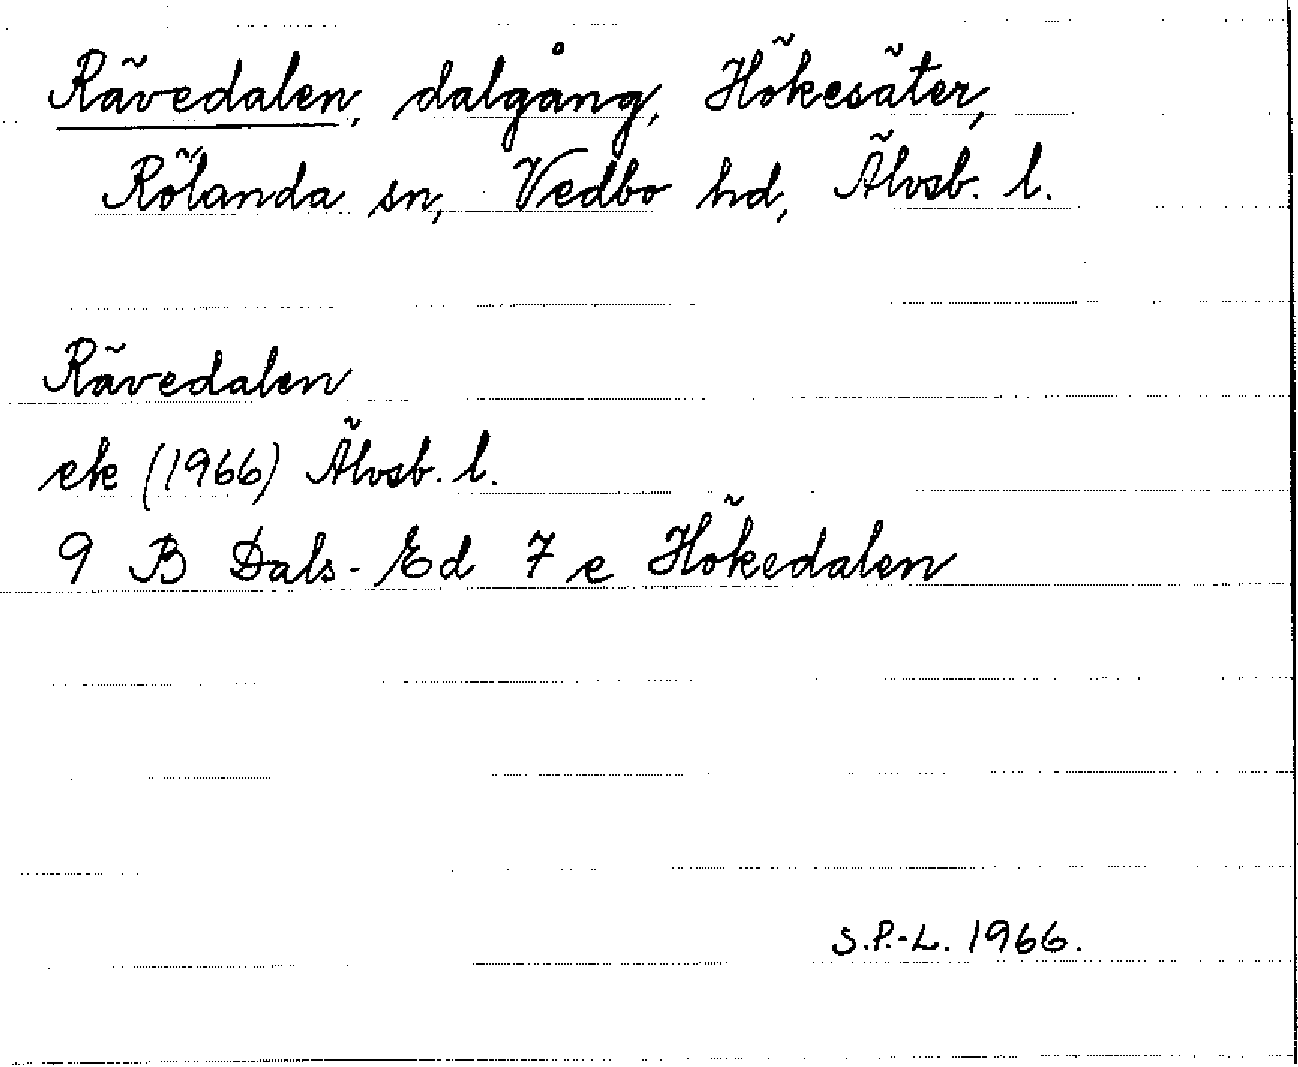 Rävedalen, dalgång, Hökesäter,
Rölanda sn, Vedbo hd, Älvsb. l.
Rävedalen
ek (1966) Älvsb. l.
9 B Dals-Ed 7 e Hökedalen
S.P.-L. 1966.